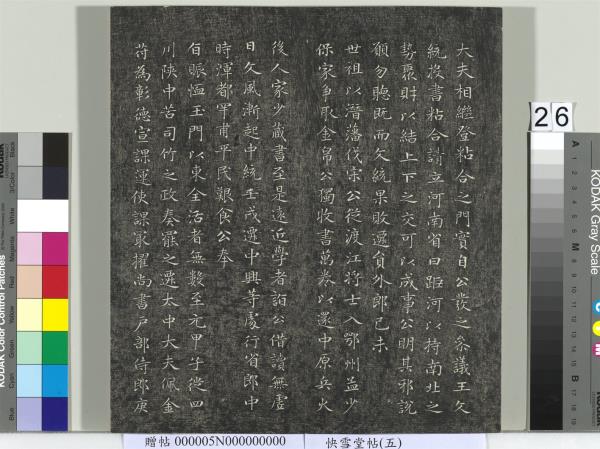 大夫相繼登粘合之門實自公發之叅議王文
統投書粘合請立河南省曰距河以持南北之
勢聚財以結上下之交可以成事公明其邪說
願勿聽既而文統果敗遷員外郎己未
世祖以潛藩伐宋公從渡江將士入鄂州益少
保家爭取金帛公獨收書萬卷以還中原兵火
後人家少藏書至是遠近學者詣公借讀無虛
日文風漸起中統壬戌遷中興等處行省郎中
時渾都罕甫平民艱食公奉
旨賑恤玉門以東全活者無數至元甲子從四
川陝中苦司竹之政奏罷之遷太中大夫佩金
苻為彰德宣課運使課最擢尚書戶部侍郎庚
26
贈帖 000005N000000000 快雪堂帖(五)
KODAK Gray Scale
KODAK Color Control Patches